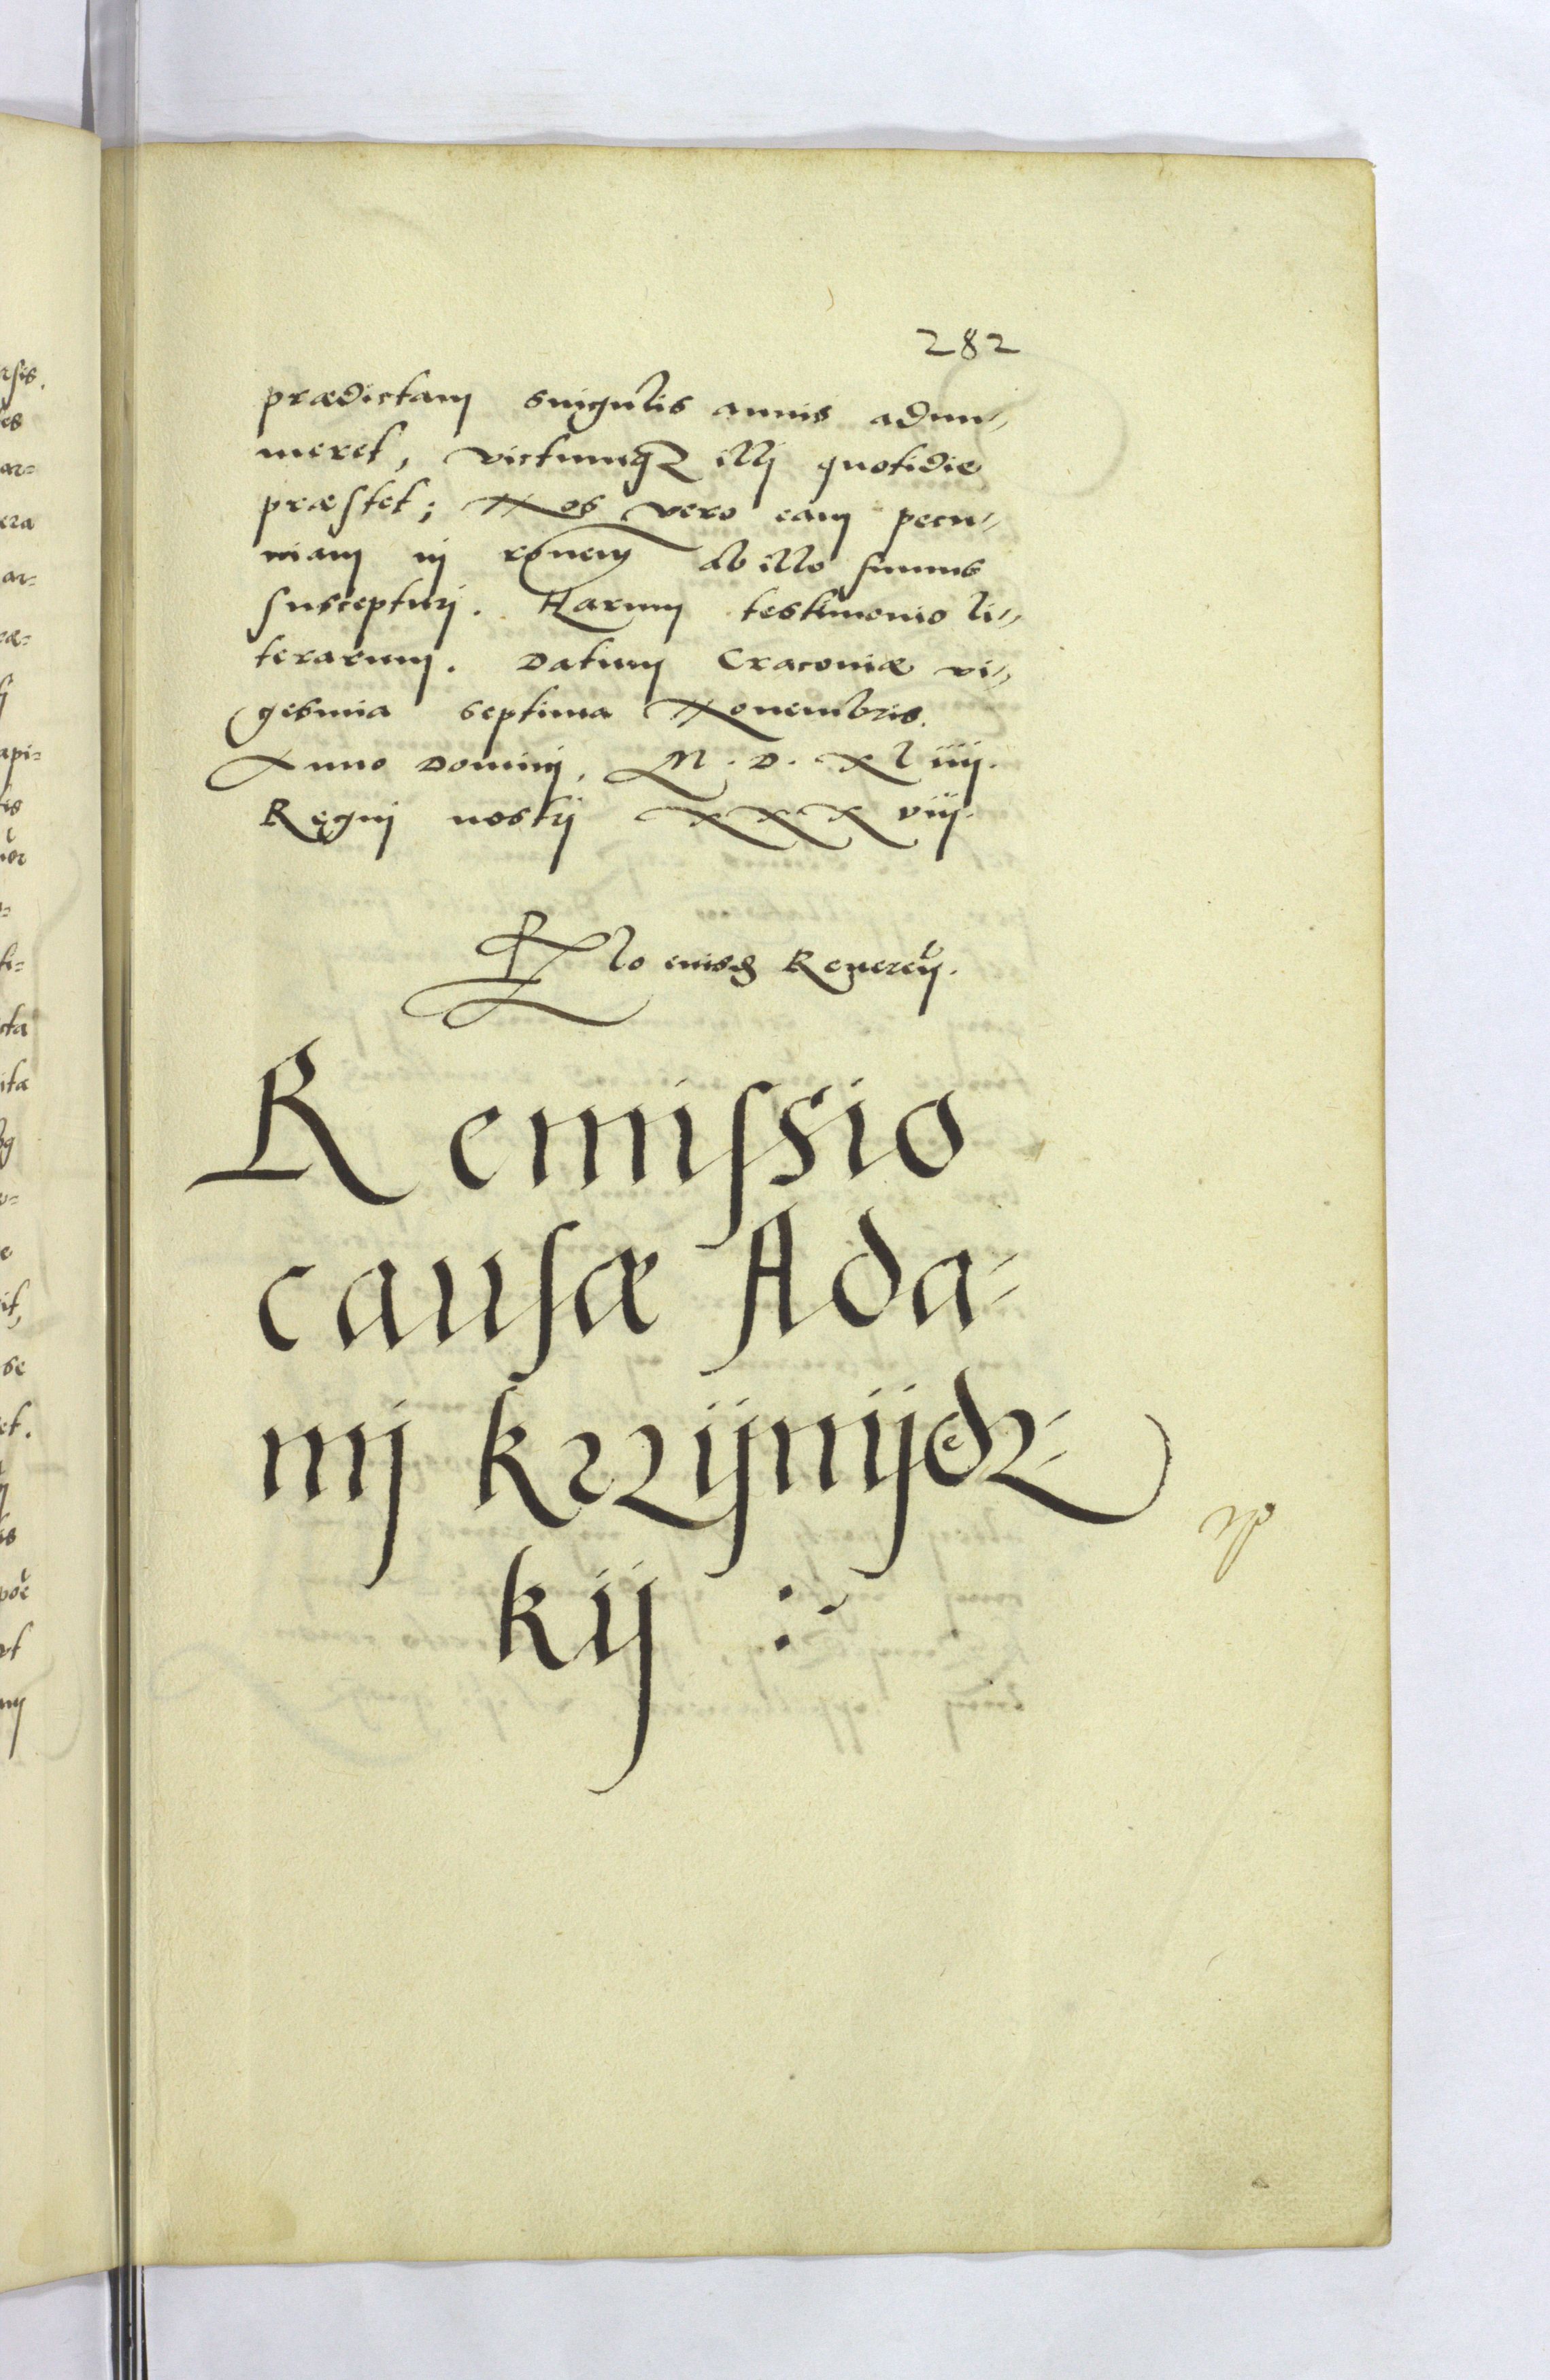 282
prædictam singulis annis adnu„
meret, victumq[ue] illj quotidie
præstet; Nos vero eam pecu„
niam in ronem ab illo sumus
suscepturi. Harum testimonio li„
terarum. Datum Cracoviæ vi„
gesima septima Novembris.
Anno Domini, M. D. XLiiij.
Regnj nostrj XXXviij.
eiusd Reveren.
Remissio
causæ Ada=
mj krzÿnÿedz=
kÿ